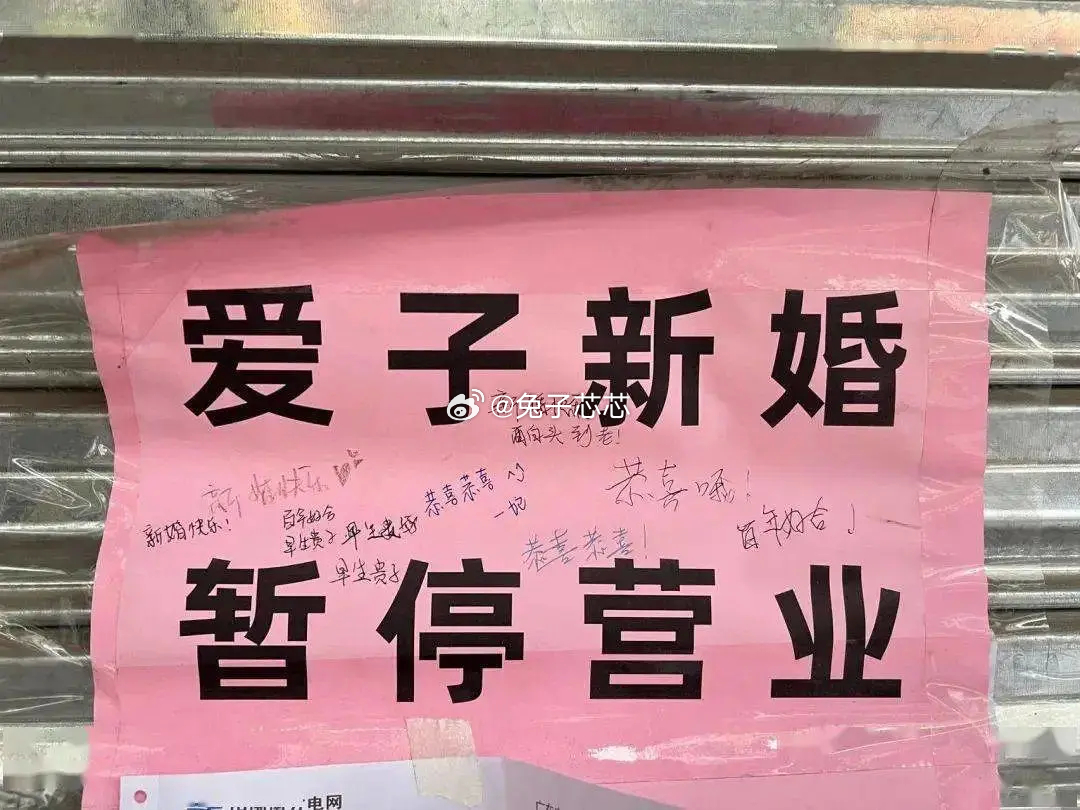 爱子新婚
@兔子芯芯
白头到老!
新婚快乐
恭喜恭喜
恭喜啊!
新婚快乐!
百年好合
早生贵子
早生贵子
恭喜恭喜!
百年好合
暂停营业
电网